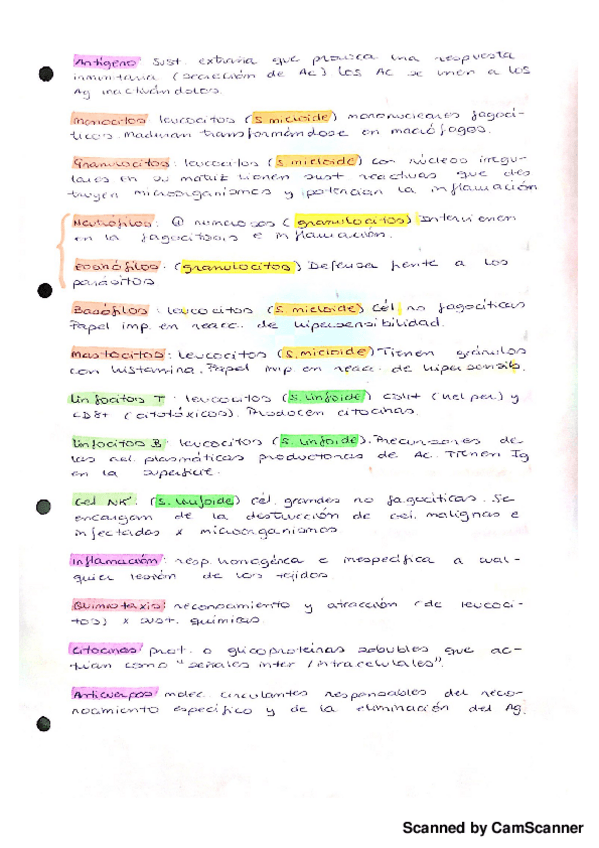 Antígeno: Sust. extraña que provoca una respuesta
inmunitaria (secreción de Ac). Los Ac se unen a los
Ag inactivándolos.
Monocitos: leucocitos (S. mieloide) mononucleares fagocí-
ticos. Maduran transformándose en macrófagos.
Granulocitos: leucocitos (S. mieloide) con núcleos irregu-
lares en su matriz tienen sust reactivas que des
truyen microorganismos y potencian la inflamación
Neutrófilos: numerosos (granulocitos) Intervienen
en la fagocitosis e inflamación.
Eosinófilos: (granulocitos) Defensa frente a los
parásitos
Basófilos: leucocitos (S. mieloide) Cél no fagocíticas
Papel imp. en reacc. de hipersensibilidad.
Mastocitos: leucocitos (S. mieloide) Tienen gránulos
con histamina. Papel imp. en reacc. de hipersensib.
Linfocitos T: leucocitos (S. linfoide) CD4+ (helper) y
CD8+ (citotóxicos). Producen citocinas.
Linfocitos B: leucocitos (S. linfoide). Precursores de
las cel. plasmáticas productoras de Ac. Tienen Ig
en la superficie.
Cel NK: (S. linfoide) cél. grandes no fagocíticas. Se
encargan de la destrucción de cel. malignas e
infectadas x microorganismos
Inflamación: resp. homogénea e inespecífica a cual-
quier lesión de los tejidos
Quimiotaxis: reconocimiento y atracción (de leucoci-
tos) x sust. químicas.
Citocinas: prot. o glicoproteínas solubles que ac-
túan como "señales inter / intracelulales".
Anticuerpos: molec. circulantes responsables del reco-
nocimiento específico y de la eliminación del Ag.
Scanned by CamScanner